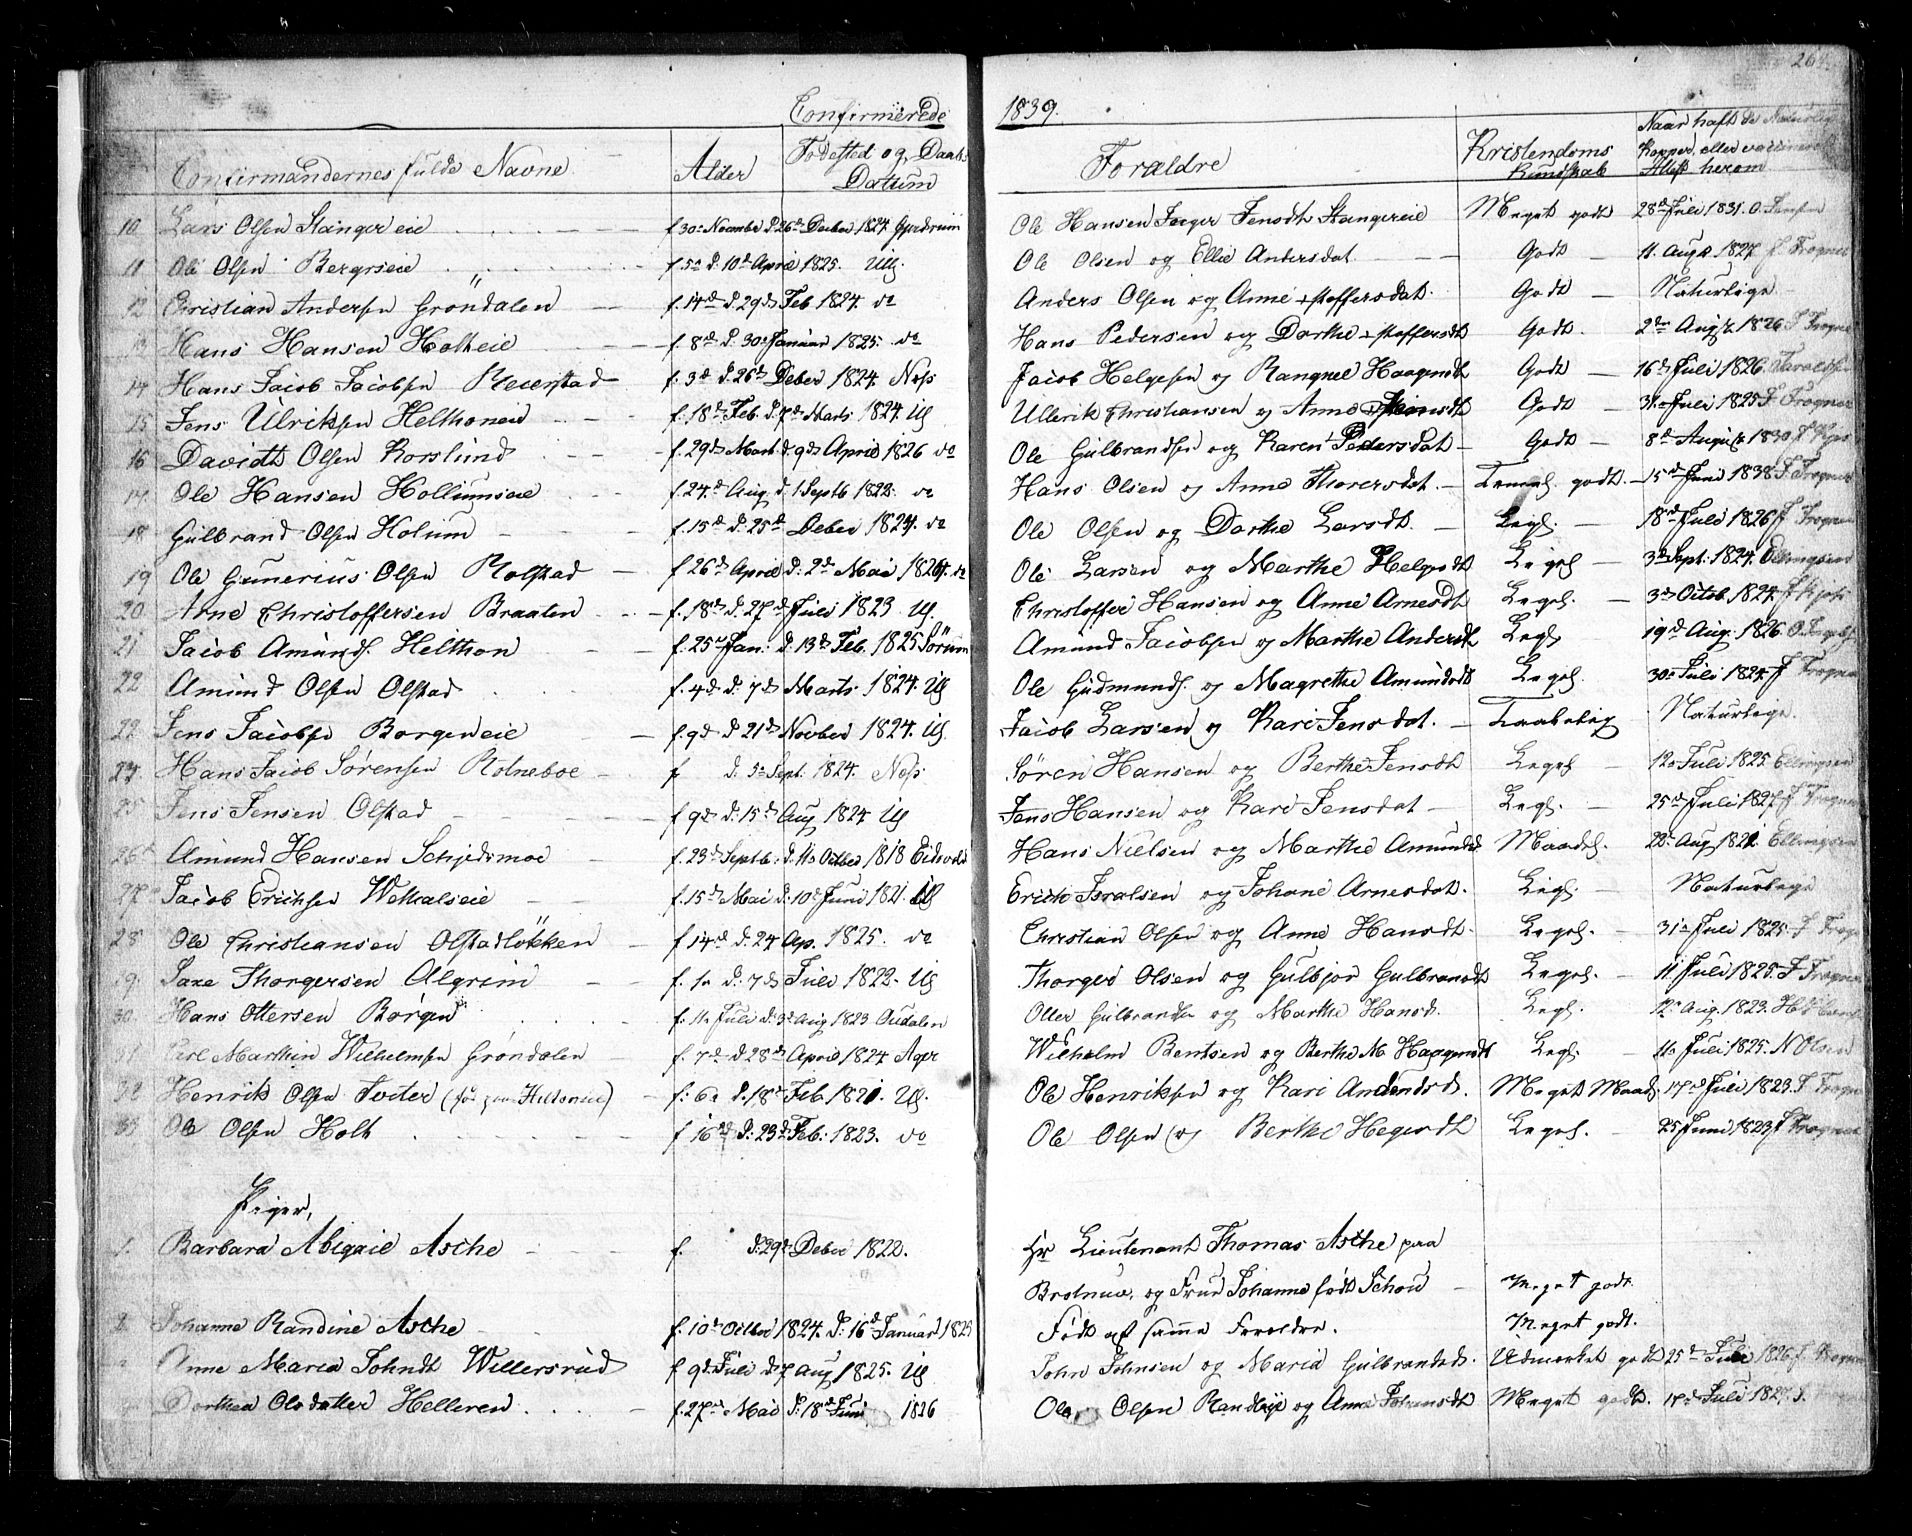 264
Confirmerede 1839.
Confirmandernes fulde Navne Alder Fødested og Daabs Datum Forældre Kristendoms Kundskab Naar haft de Naturlige Kopper, eller vaccineret Attest herom
10 Lars Olsen Stangereie f. 30 Novmbr d. 26d Decber 1824 Gjerdrum Ole Hansen Jæger Jensdt. Stangereie Meget godt 28d Juli 1831. O. Jensen
11 Ole Olsen Bergseie f. 5d d. 10d April 1825. Ull. Ole Olsen og Ellie Andersdat. Godt 11. Aug 1827 J Frogner
12 Christian Andersen Gröndalen f. 14d d. 29d Feb 1824. do Anders Olsen og Anne +stoffersdat. Godt Naturlige
13 Hans Hansen Holteie f. 8d d. 30 Januar 1825. do Hans Pedersen og Dorthe +stoffersdt Godt 2den Aug. 1826 J Frogner
14 Hans Jacob Jacobsen Reierstad f. 3d d. 26d Deber 1824. Nes Jacob Helgesen og Rangnel Haagensdt Godt 16d Juli 1826.
15 Jens Ulriksen Helthoneie f. 18d Feb. d. 7d Marts 1824. Ull Ullerik Christiansen og Anne Godt 31. Juli 1825 J Frogner
16 Davidth Olsen Korslund f. 29d Mart d. 9d April 1826 do Ole Gulbrandsen og Karen Pedersdat Godt 8d August 1830
17. Ole Hansen Hollumseie f. 24.d Aug d. 1 Septb 1822. do Hans Olsen og Anne Thoresdat. Temel. godt. 15d Juni 1838 J Frogner
18 Gulbrand Olsen Holum f. 15d d. 25d Deber 1824. do Ole Olsen og Dorthe Larsdt. Legl. 18d Juli 1826 J Frogner
19 Ole Gunerius Olsen Rolstad f. 26d April d. 2d Mai 1824. do Ole Larsen og Marthe Helgesdt Legel. 3d Sept. 1824. Ellingsen
20 Arne Christoffersen Braaten f. 18d d. 27d Juli 1823 Ull. Christoffer Hansen og Anne Arnesdt Legel. 3d Octob. 1824.
21 Jacob Amunds. Helthon f. 25d Jan. d. 13d Feb. 1825 Sörum Amund Jacobsen og Marthe Andersdt Legl. 19d Aug. 1826
22 Amund Olsen Olstad f. 4d d. 7d Marts 1824. Ull Ole Gudmunds. og Magrethe Amundsdt Legel. 30 Juli 1824 J Frogner
22. Jens Jacobsen Borgeneie f. 9d d. 21d Novber 1824. Ull Jacob Larsen og Kari Jensdat. Taalelig Naturlige.
24 Hans Jacob Sörensen Rolneboe f. d. 5 Sept. 1824. Nes Sören Hansen og Berthe Jensdt Legel 12 Juli 1825 Ellingsen
25 Jens Jensen Olstad f. 9d d. 15d Aug 1824 Ull Jens Hansen og Kari Jensdat Legl. 25d Juli 1827 J Frogner
26 Amund Hansen Schjedsmoe f. 23d Septb. d. 11 Octbr 1818 Eidsvold Hans Nielsen og Marthe Amundsd Maadel. 22. Aug 1821 Ellingsen
27. Jacob Erichsen Wekalseie f. 15d Mai d. 10d Juni 1821. Ull Erich Isralsen og Johane Arnesdat. Legl. Naturlige
28 Ole Christiansen Olstadløkken f. 14d d. 24 Ap. 1825. do Christian Olsen og Anne Hansdt. Legel. 31 Juli 1825 J Frogner
29. Saxe Thorgersen Algrim f. 1 d. 7d Juli 1822. Ull Thorger Olsen og Gulbjor Gulbrandsdt Legel. 11 Juli 1825. J Frogner
30. Hans Ottersen Borgen f. 11 Juli d. 3d Aug 1823 Oudalen Otter Gulbrands og Marthe Hansd. Legl. 12 Aug. 1823.
31. Carl Marthin Wilhelmsen Gröndalen f. 7d d 28d April 1824 Ager Wilhelm Bentsen og Berthe M. Haagensdt Legl. 11 Juli 1825. N Olsen
32 Henrik Olsen Sæter f. 6 d. 18d Feb. 1821. Ull. Ole Henriksen og Kari Amundsd. Meget Maadel. 17d Juli 1823. J Frogner
33 Ole Olsen Holt f. 16d d. 23d Feb. 1823. do Ole Olsen og Berthe Hegersdt Legel. 25 Juni 1823 J Frogner
Piger,
1. Barbara Abigael Asche f. d. 29d Deber 1822. Hr Lieutenant Thomas Asche paa
og Frue Johanne født Schou Meget godt.
2. Johanne Randine Asche f. 10d Octber 1824. d. 16d Januar 1825 Født af samme Forældre. Meget godt.
3. Anne Maria Johndt Willersrud f. 9d Juli d. 7 Aug 1825. Ull John Johnsen og Maria Gulbrandsd. Udmerket godt 25d Juli 1826 J Frogner
Dorthea Olsdatter Helleren f. 27d Mai d. 18d Juni 1826 Ole Olsen og Anne Johansdt Meget godt. 17d Juli 1827.